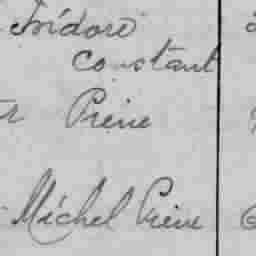 Isidore
Constant
Preve
Michel Preve